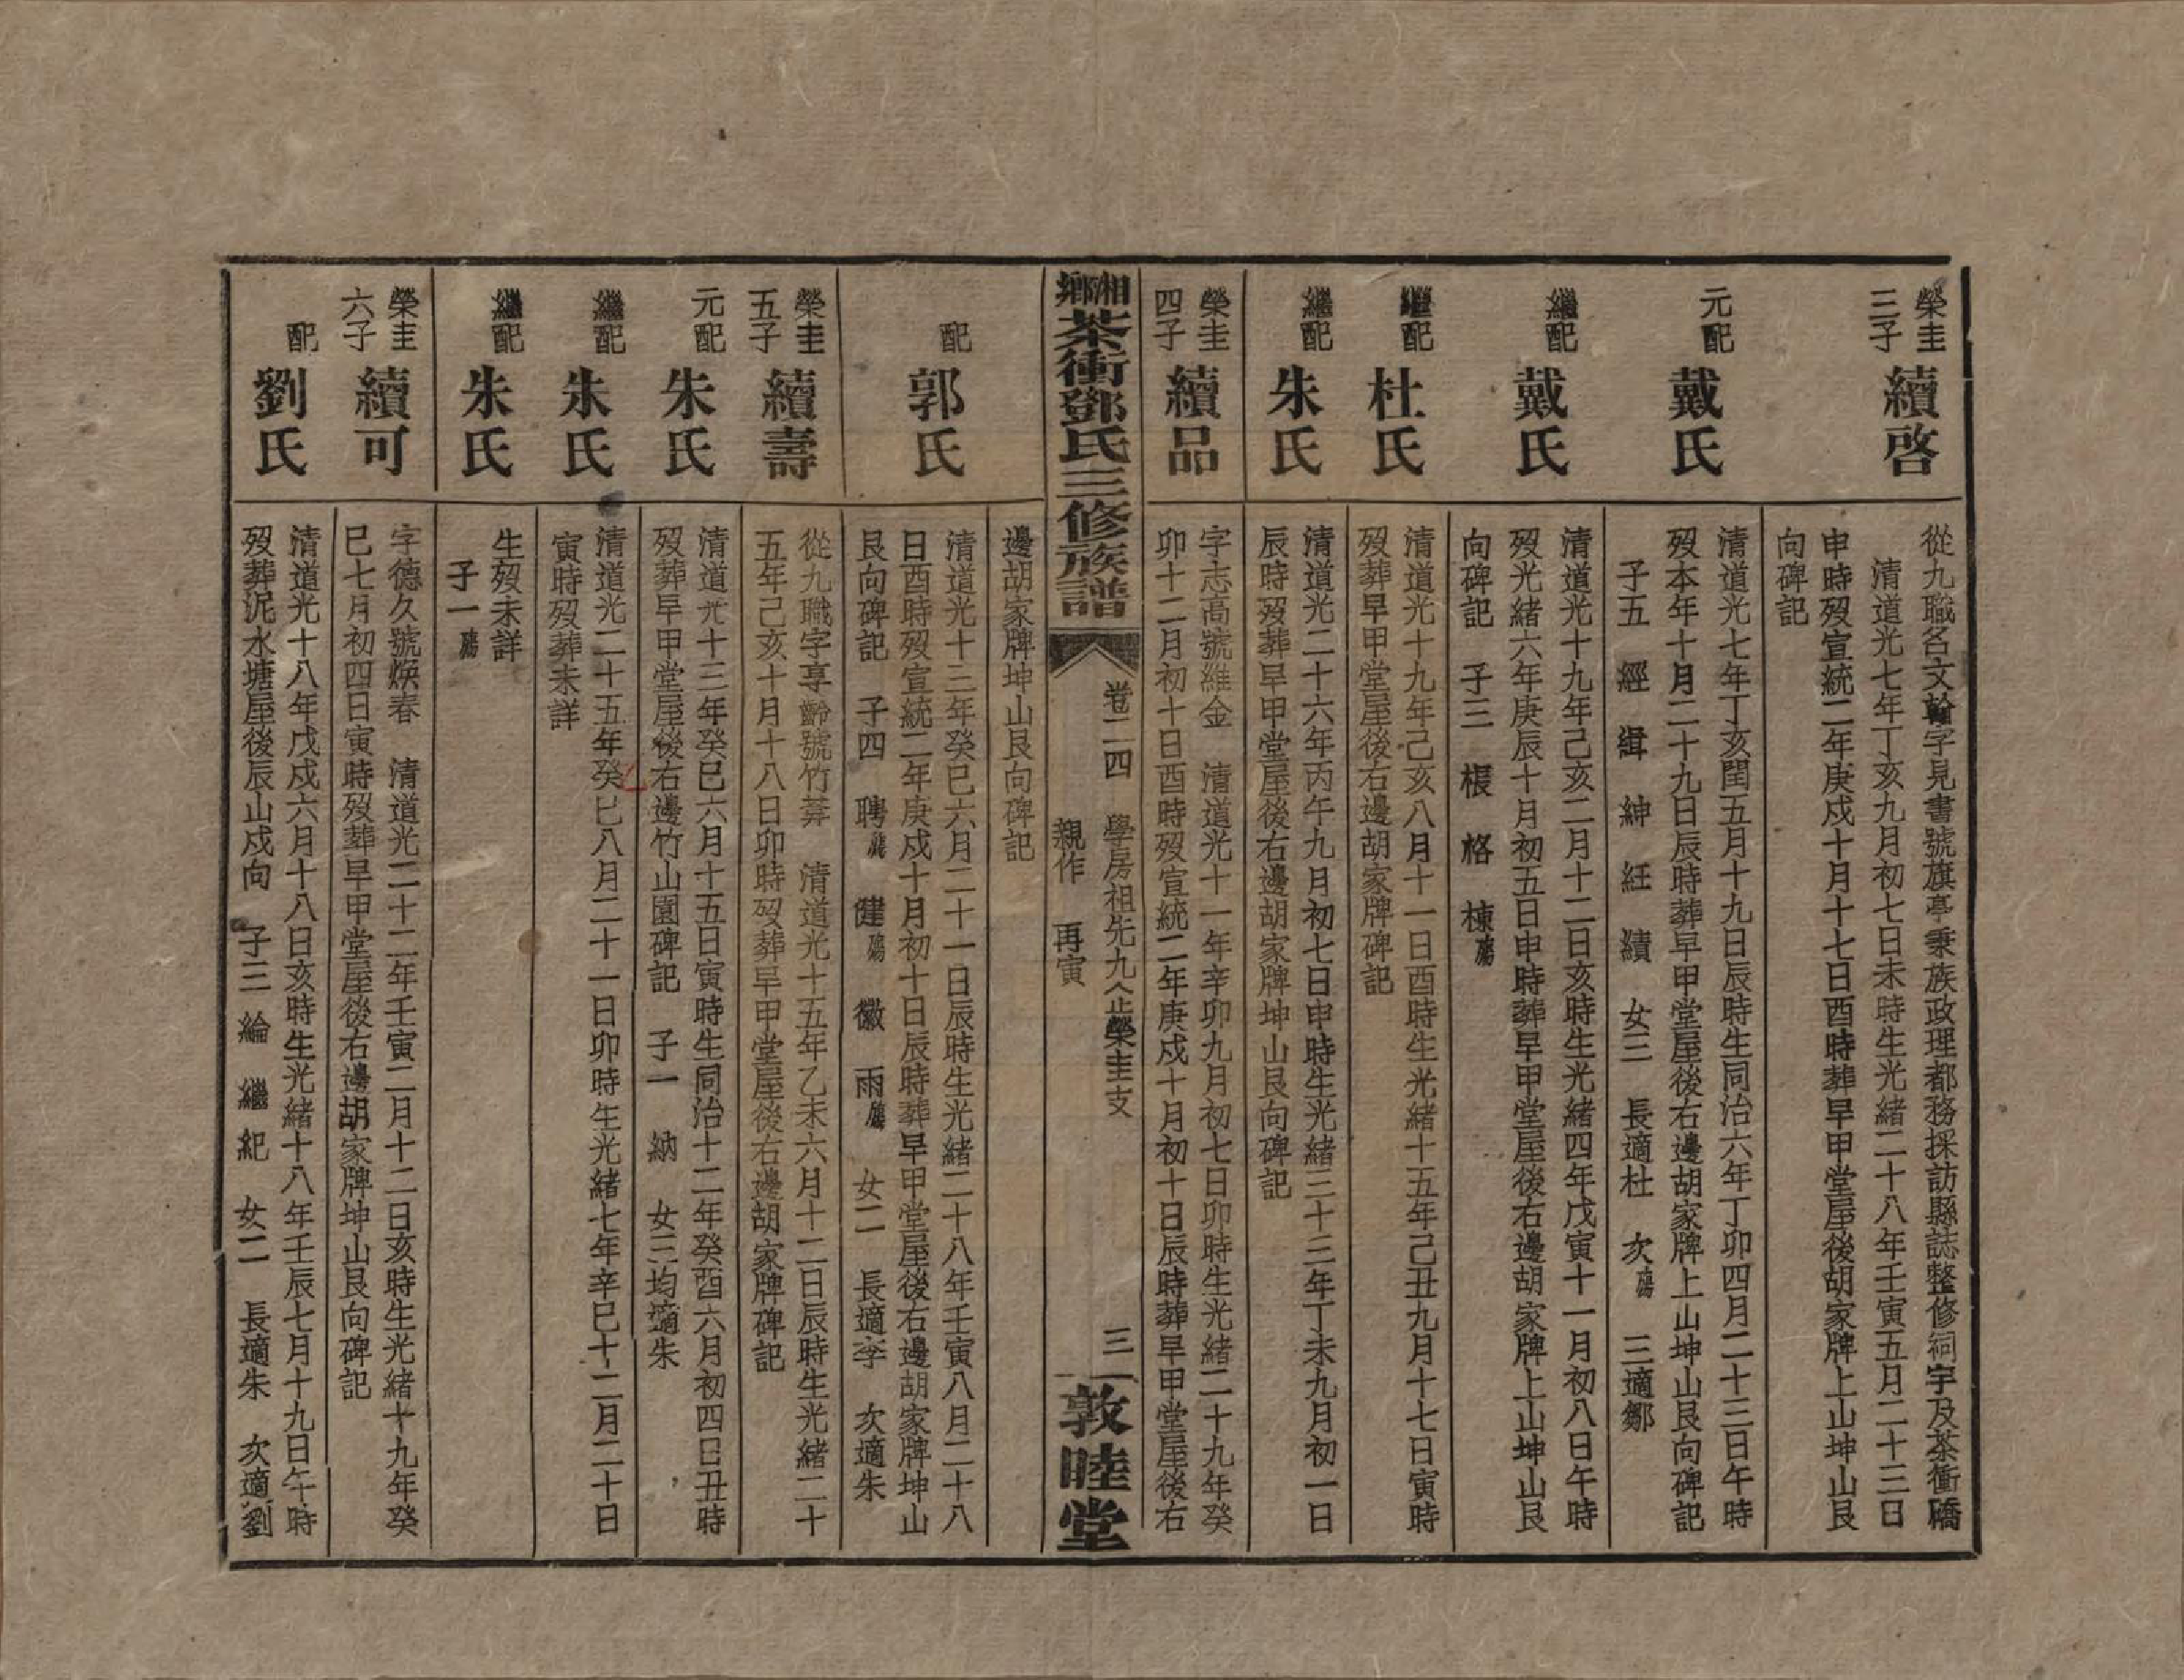 榮圭三子
續啓
從九職名文翰字見書號旗亭秉族政理都務採訪縣誌整修祠宇及茶衝橋
清道光七年丁亥九月初七日未時生光緒二十八年壬寅五月二十三日
申時歿宣統二年庚戍十月十七日酉時葬早甲堂屋後胡家牌上山坤山艮
向碑記
元配
戴氏
清道光七年丁亥閏五月十九日辰時生同治六年丁卯四月二十三日午時
歿本年十月二十九日辰時葬早甲堂屋後右邊胡家牌上山坤山艮向碑記
子五 經 緝 紳 紝 績 女三 長適杜 次殤 三適鄒
繼配
戴氏
清道光十九年己亥二月十二日亥時生光緒四年戊寅十一月初八日午時
歿光緒六年庚辰十月初五日申時葬早甲堂屋後右邊胡家牌上山坤山艮
向碑記 子三 棖 格 棟殤
繼配
杜氏
清道光十九年己亥八月十一日酉時生光緒十五年己丑九月十七日寅時
歿葬早甲堂屋後右邊胡家牌碑記
繼配
朱氏
清道光二十六年丙午九月初七日申時生光緒三十三年丁未九月初一日
辰時歿葬早甲堂屋後右邊胡家牌坤山艮向碑記
榮圭四子
續品
字志高號維金 清道光十一年辛卯九月初七日卯時生光緒二十九年癸
卯十二月初十日酉時歿宣統二年庚戍十月初十日辰時葬早甲堂屋後右
湘鄉茶衝鄧氏三修族譜
卷二四 學房祖先九公止榮圭支
親作 再寅
三一
敦睦堂
邊胡家牌坤山艮向碑記
配
郭氏
清道光十三年癸巳六月二十一日辰時生光緒二十八年壬寅八月二十八
日酉時歿宣統二年庚戍十月初十日辰時葬早甲堂屋後右邊胡家牌坤山
艮向碑記 子四 聘殤 健殤 徽 雨殤 女二 長適李 次適朱
榮圭五子
續壽
從九職字享齡號竹葊 清道光十五年乙未六月十二日辰時生光緒二十
五年己亥十月十八日卯時歿葬早甲堂屋後右邊胡家牌碑記
元配
朱氏
清道光十三年癸巳六月十五日寅時生同治十二年癸酉六月初四日丑時
歿葬早甲堂屋後右邊竹山園碑記 子一 納 女三均適朱
繼配
朱氏
清道光二十五年癸巳八月二十一日卯時生光緒七年辛巳十二月二十日
寅時歿葬未詳
繼配
朱氏
生歿未詳
子一殤
榮圭六子
續可
字德久號煥春 清道光二十二年壬寅二月十二日亥時生光緒十九年癸
巳七月初四日寅時歿葬早甲堂屋後右邊胡家牌坤山艮向碑記
配
劉氏
清道光十八年戊戍六月十八日亥時生光緒十八年壬辰七月十九日午時
歿葬泥水塘屋後辰山戍向 子三 綸 繼 紀 女二 長適朱 次適劉